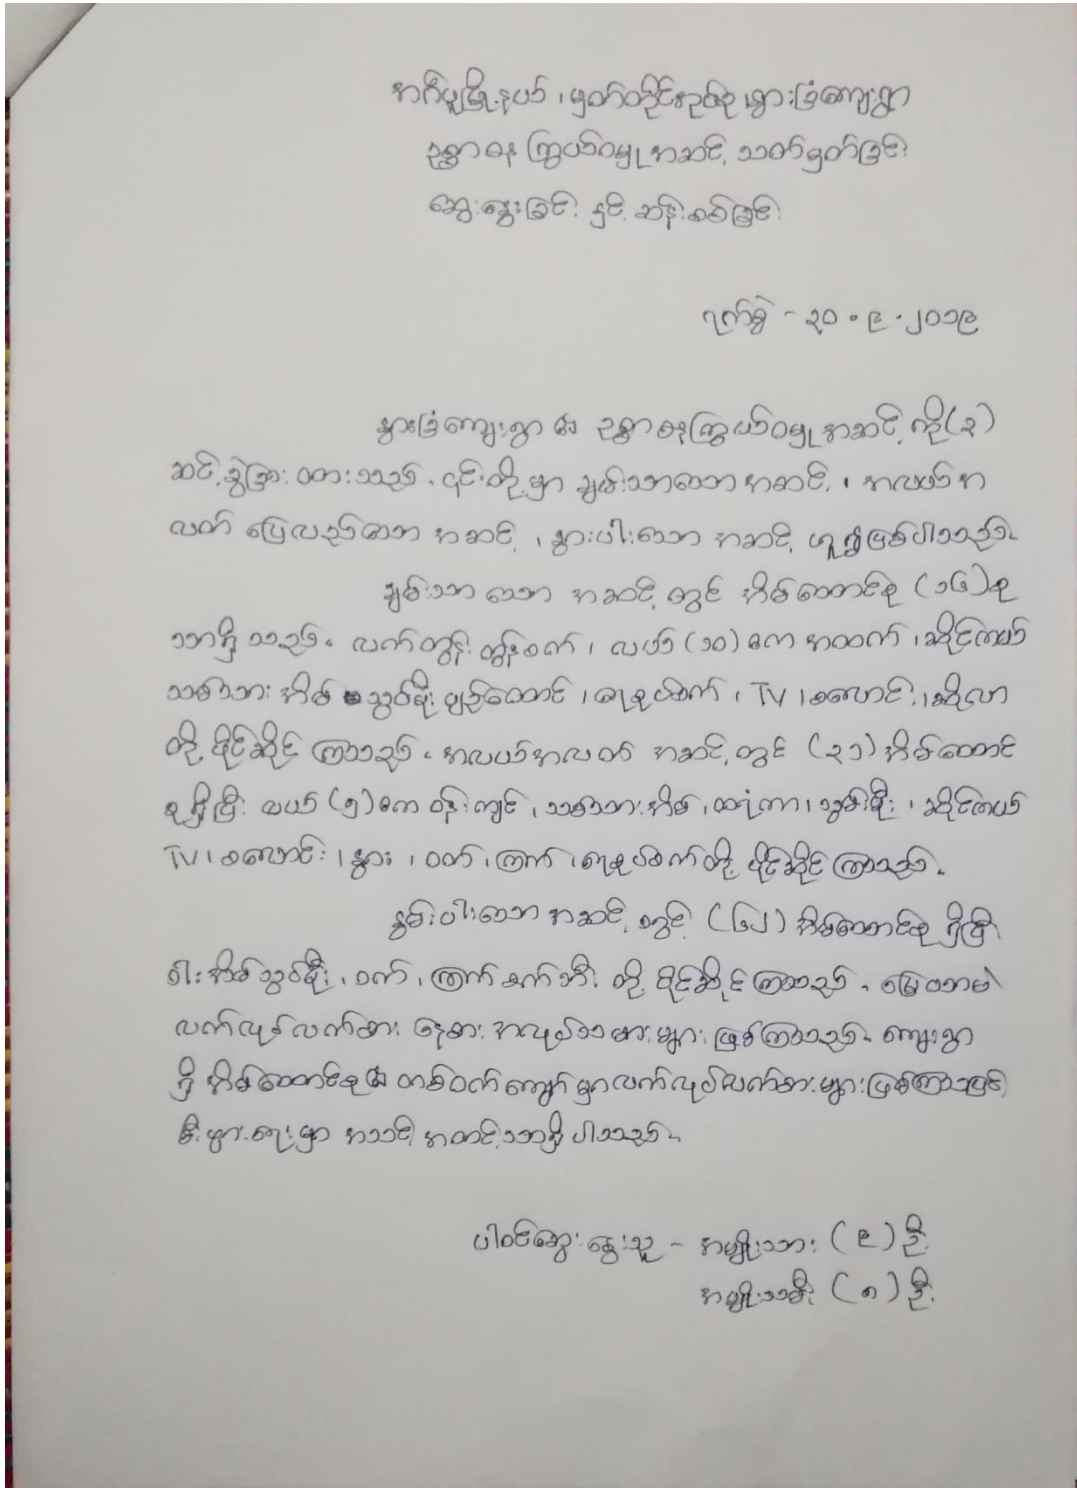 အင်္ဂပူမြို့နယ်၊ မှတ်တိုင်အုပ်စု၊ နွားခြံကျေးရွာ
ဥစ္စာဓန ကြွယ်ဝမှု အဆင့် သတ်မှတ်ခြင်း
ဆွေးနွေးခြင်း နှင့် ဆန်းစစ်ခြင်း
ရက်စွဲ - ၃၀.၉.၂၀၁၉
နွားခြံကျေးရွာ ၏ ဥစ္စာဓနကြွယ်ဝမှု အဆင့် ကို (၃)
ဆင့် ခွဲခြား ထားသည်။ ၎င်းတို့မှာ ချမ်းသာသော အဆင့်၊ အလယ်အ
လတ် ပြေလည်သော အဆင့်၊ နွမ်းပါးသော အဆင့် ဟူ၍ဖြစ်ပါသည်။
ချမ်းသာ သော အဆင့် တွင် အိမ်ထောင်စု (၁၆) စု
သာရှိ သည်။ လက်တွန်း ထွန်စက်၊ လယ် (၁၀) ဧက အထက်၊ ဆိုင်ကယ်
သစ်သား အိမ် သွပ်မိုး ပျဉ်ထောင်၊ ရေစုပ်စက်၊ TV ၊ စလောင်း၊ ဆိုလာ
တို့ ပိုင်ဆိုင် ကြသည်။ အလယ်အလတ် အဆင့် တွင် (၃၁) အိမ်ထောင်
စု ရှိပြီး လယ် (၅) ဧက ဝန်းကျင်၊ သစ်သားအိမ်၊ ထရံကာ၊ သွပ်မိုး၊ ဆိုင်ကယ်
TV ၊ စလောင်း၊ နွား၊ ဝက်၊ ကြက်၊ ရေစုပ်စက်တို့ ပိုင်ဆိုင် ကြသည်။
နွမ်းပါးသော အဆင့် တွင် (၆၂) အိမ်ထောင်စု ရှိပြီး
ဝါးအိမ်သွပ်မိုး၊ ဝက်၊ ကြက် စက်ဘီး တို့ ပိုင်ဆိုင် ကြသည်။ မြေယာမဲ့
လက်လုပ်လက်စား နေ့စား အလုပ်သမားများ ဖြစ်ကြသည်။ ကျေးရွာ
ရှိ အိမ်ထောင်စု ၏ တစ်ဝက်ကျော် မှာ လက်လုပ်လက်စားများ ဖြစ်ကြသဖြင့်
စီးပွားရေးမှာ အသင့် အတင့်သာရှိ ပါသည်။
ပါဝင်ဆွေးနွေးသူ - အမျိုးသား (၉) ဦး
အမျိုးသမီး (၈) ဦး